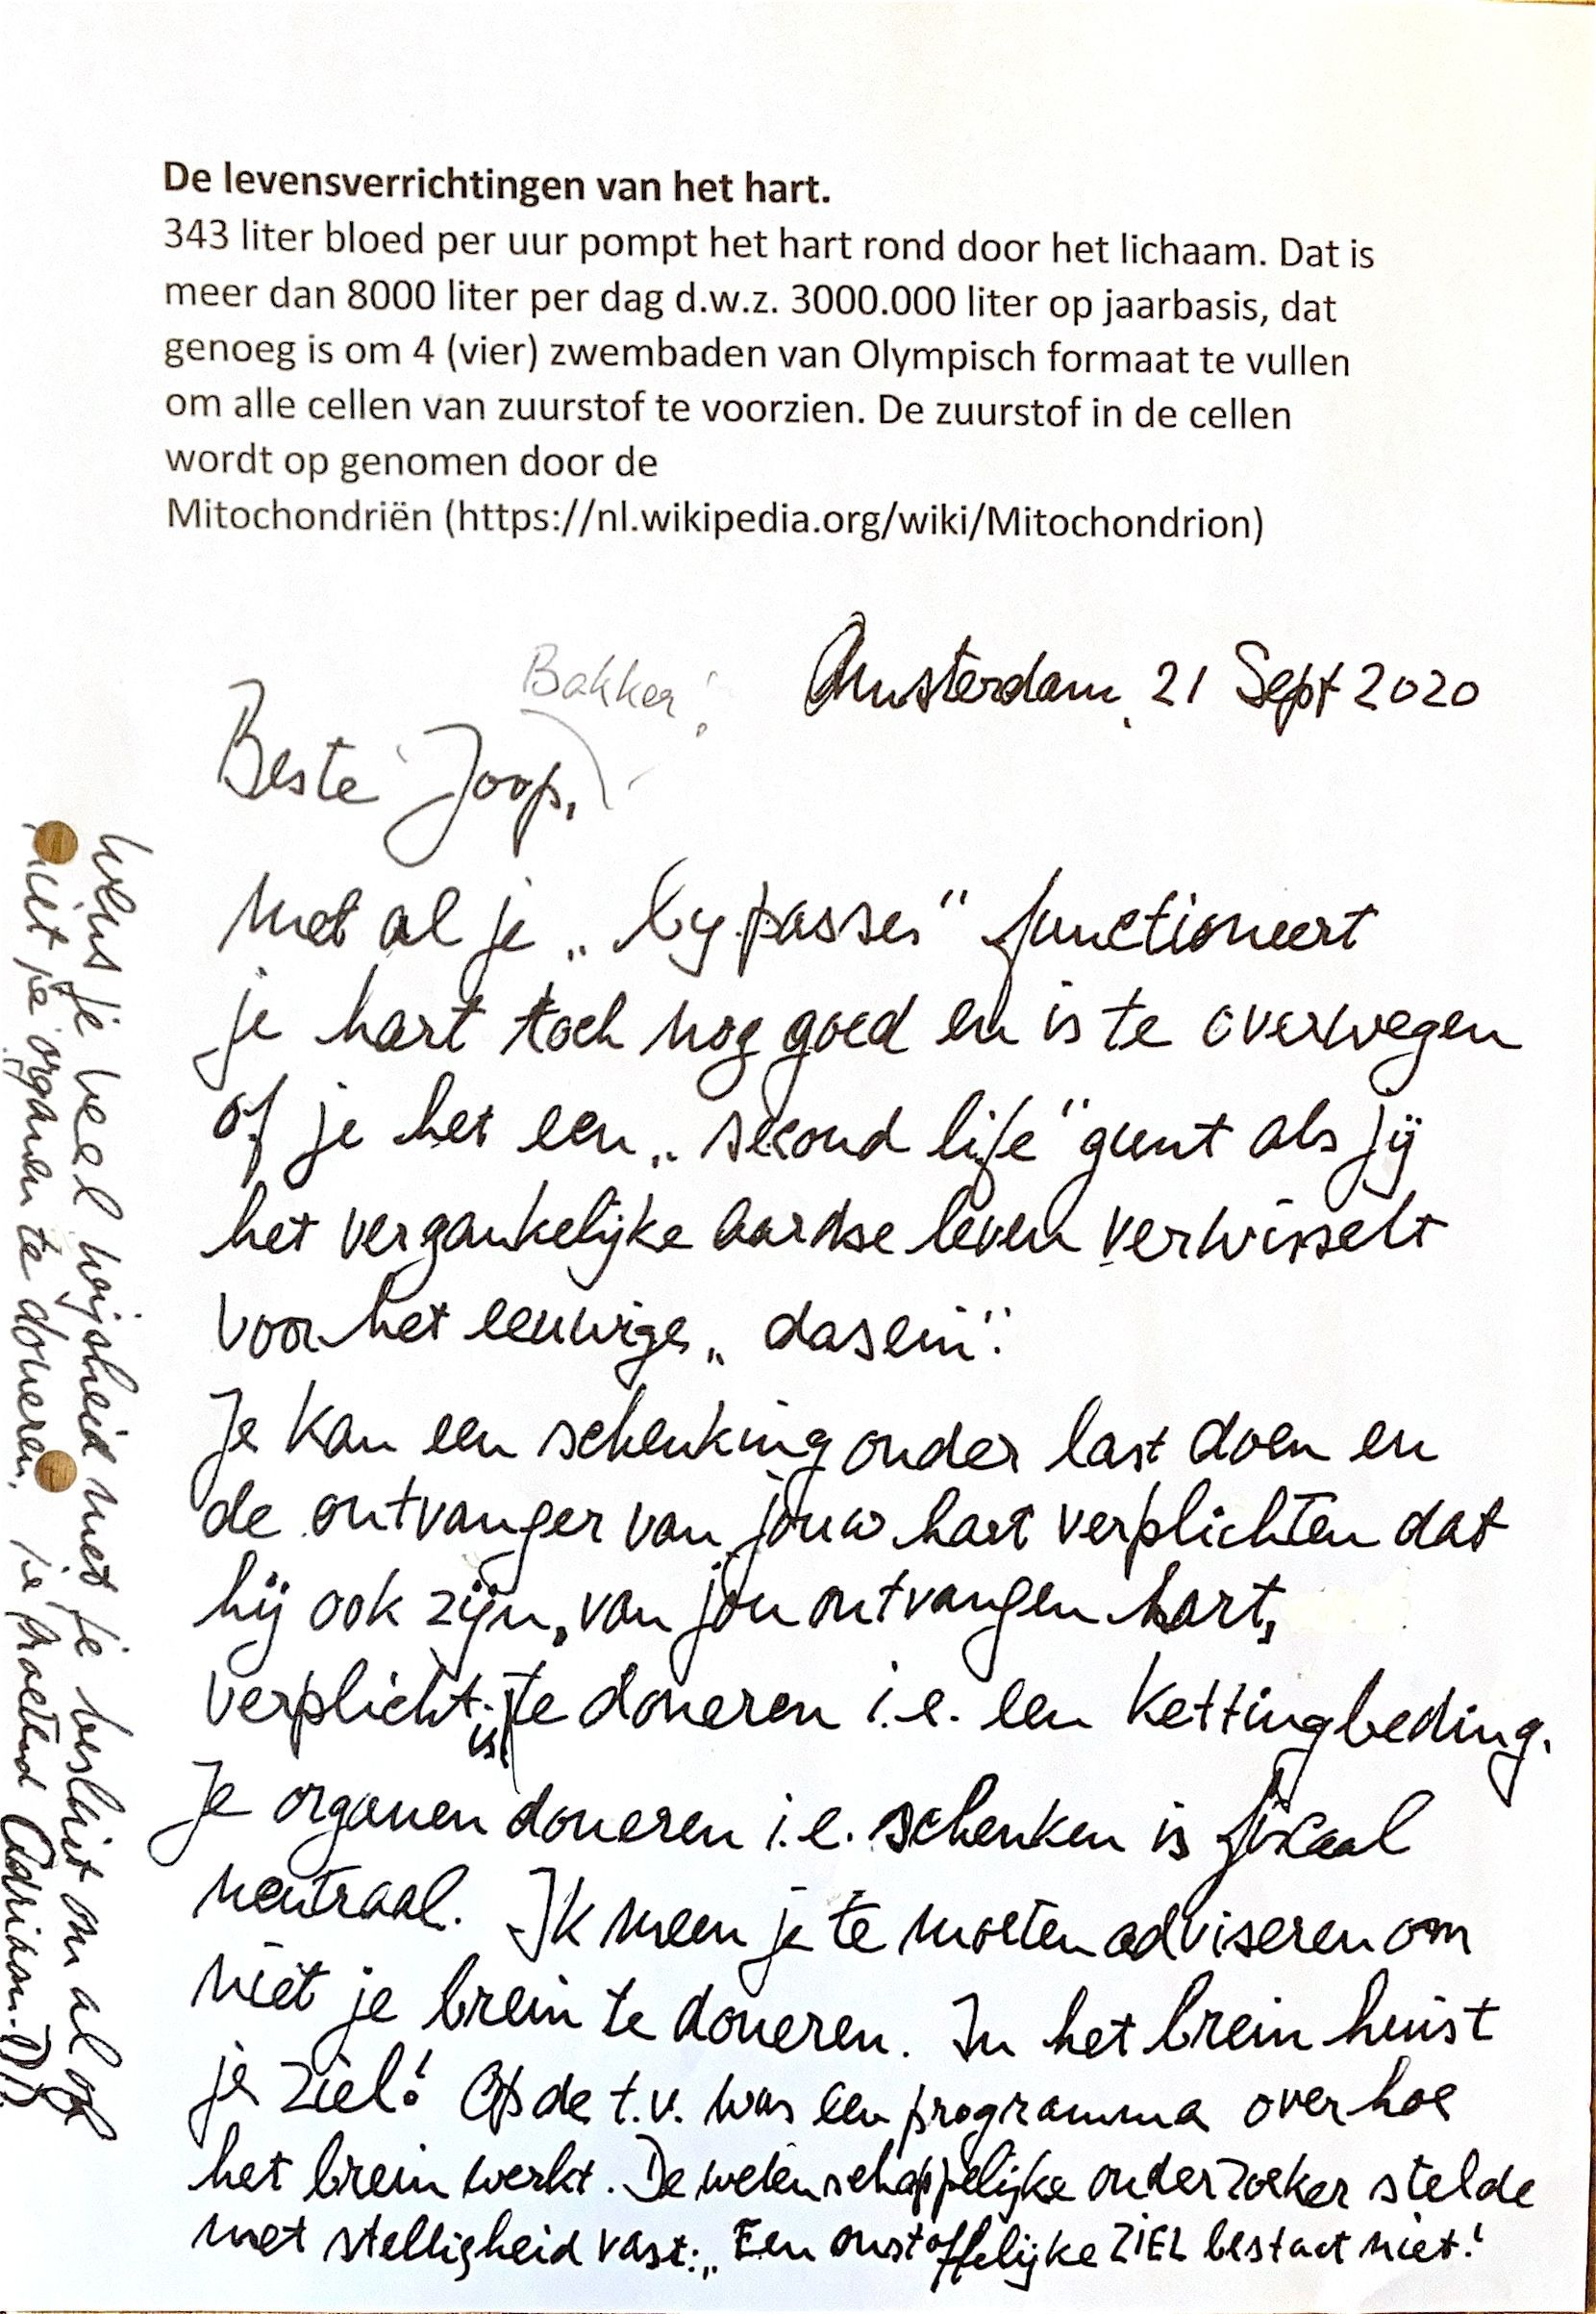 De levensverrichtingen van het hart.
343 liter bloed per uur pompt het hart rond door het lichaam. Dat is
meer dan 8000 liter per dag d.w.z. 3000.000 liter op jaarbasis, dat
genoeg is om 4 (vier) zwembaden van Olympisch formaat te vullen
om alle cellen van zuurstof te voorzien. De zuurstof in de cellen
wordt op genomen door de
Mitochondriën (https://nl.wikipedia.org/wiki/Mitochondrion)
Amsterdam, 21 Sept 2020
Bakker!
Beste Joop,
Met al je „bypasses" functioneert
je hart toch nog goed en is te overwegen
of je het een „second life" gunt als jij
het vergankelijke aardse leven verwisselt
voor het eeuwige „dasein".
Je kan een schenking onder last doen en
de ontvanger van jouw hart verplichten dat
hij ook zijn, van jou ontvangen hart,
verplicht is te doneren i.e. een kettingbeding.
Je organen doneren i.e. schenken is fiscaal
neutraal. Ik meen je te moeten adviseren om
niet je brein te doneren. In het brein huist
je ziel! Op de t.v. was een programma over hoe
het brein werkt. De wetenschappelijke onderzoeker stelde
met stelligheid vast: „Een onstoffelijke ZIEL bestaat niet!
Wens je veel wijsheid met je besluit om al of
niet je organen te doneren. je Adriaan